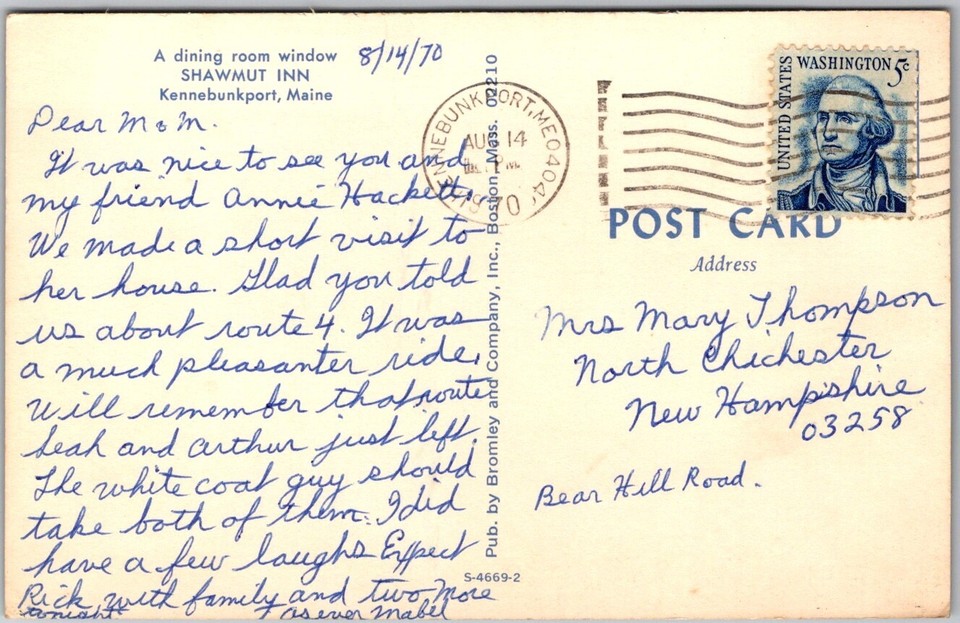 A dining room window
SHAWMUT INN
Kennebunkport, Maine
8/14/70
Dear M & M.
It was nice to see you and
my friend Annie Hackett.
We made a short visit to
her house. Glad you told
us about route 4. It was
a much pleasanter ride.
Will remember that route
Leah and Arthur just left.
The white coat guy should
take both of them. I did
have a few laughs Expect
Rick with family and two more
tonight. As ever Mabel
Pub. by Bromley and Company, Inc., Boston, Mass. 02210
S-4669-2
KENNEBUNKPORT, ME 0404
AUG 14
PM
UNITED STATES
WASHINGTON 5c
POST CARD
Address
Mrs Mary Thompson
North Chichester
New Hampshire
03258
Bear Hill Road.